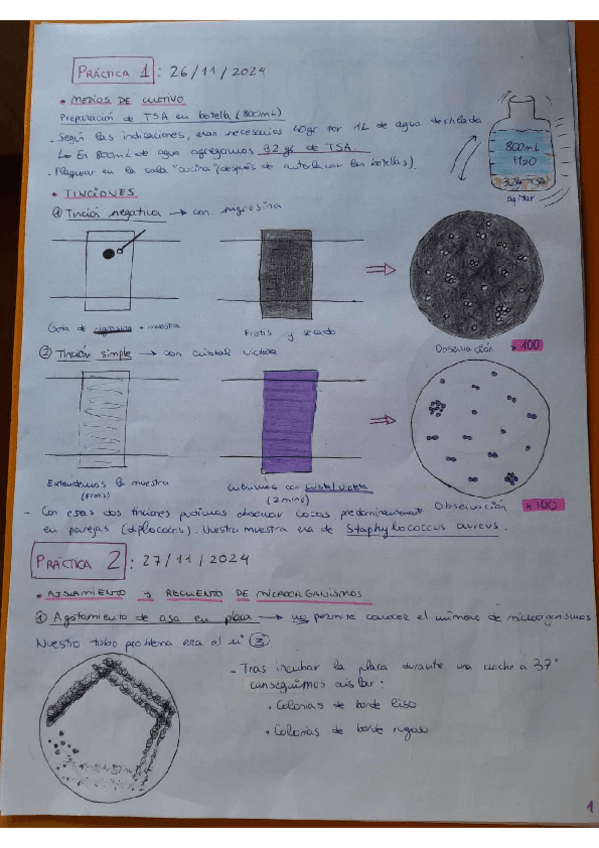 PRÁCTICA 1: 26/11/2024
• MEDIOS DE CULTIVO
Preparación de TSA en botella (800mL)
- Según las indicaciones, eran necesarios 40gr por 1L de agua destilada
↳ En 800mL de agua agregamos 32 gr de TSA.
- Plaquear en la sala "cocina" (después de autoclavar las botellas).
800mL
H2O
32gr TSA
agitar
• TINCIONES
① Tinción negativa → con nigrosina
Gota de nigrosina + muestra
Frotis y secado
Observación x100
② Tinción simple → con cristal violeta
Extendemos la muestra
(frotis)
Cubrimos con cristal violeta
(2 mins)
Observación x100
- Con esas dos tinciones pudimos observar cocos predominantemente
en parejas (diplococos). Nuestra muestra era de Staphylococcus aureus.
PRÁCTICA 2: 27/11/2024
• AISLAMIENTO y RECUENTO DE MICROORGANISMOS
① Agotamiento de asa en placa → no permite conocer el número de microorganismos
Nuestro tubo problema era el nº ③
- Tras incubar la placa durante una noche a 37°
conseguimos aislar:
• Colonias de borde liso
• Colonias de borde rugoso
1